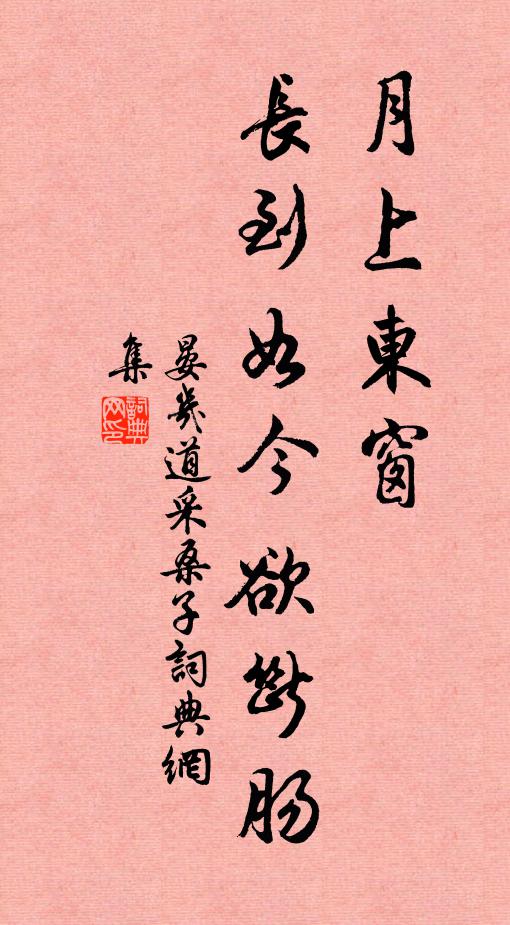 月上東窗
長到如今欲斷腸
晏幾道采桑子詞典網
集
詞典
网印